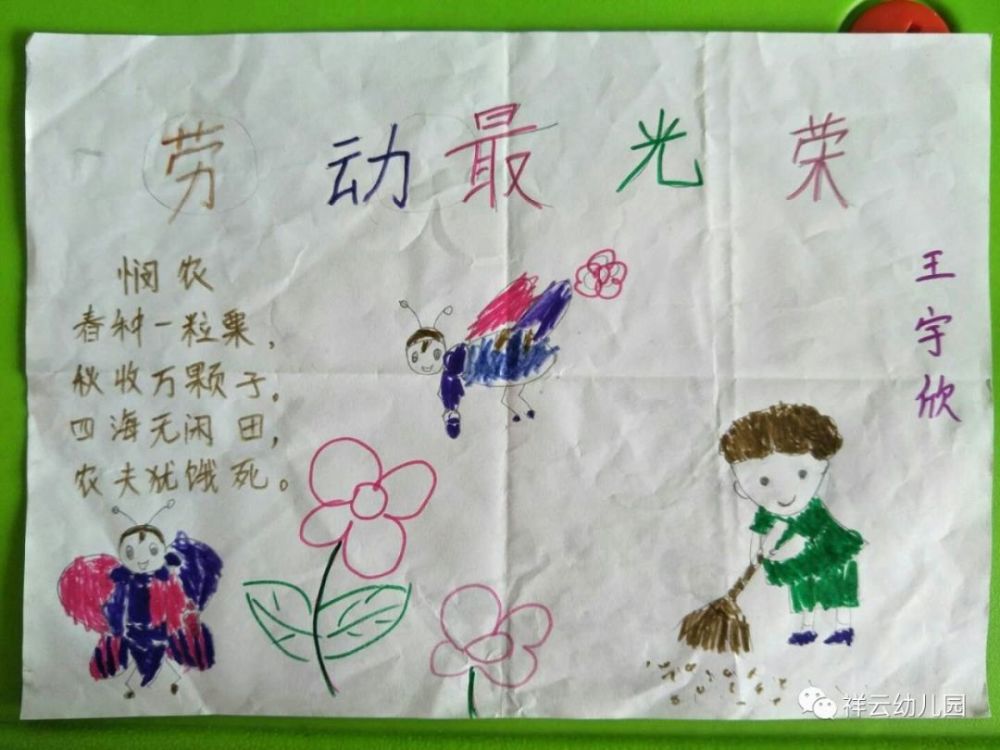 劳动最光荣
悯农
春种一粒粟，
秋收万颗子。
四海无闲田，
农夫犹饿死。
王宇欣
祥云幼儿园